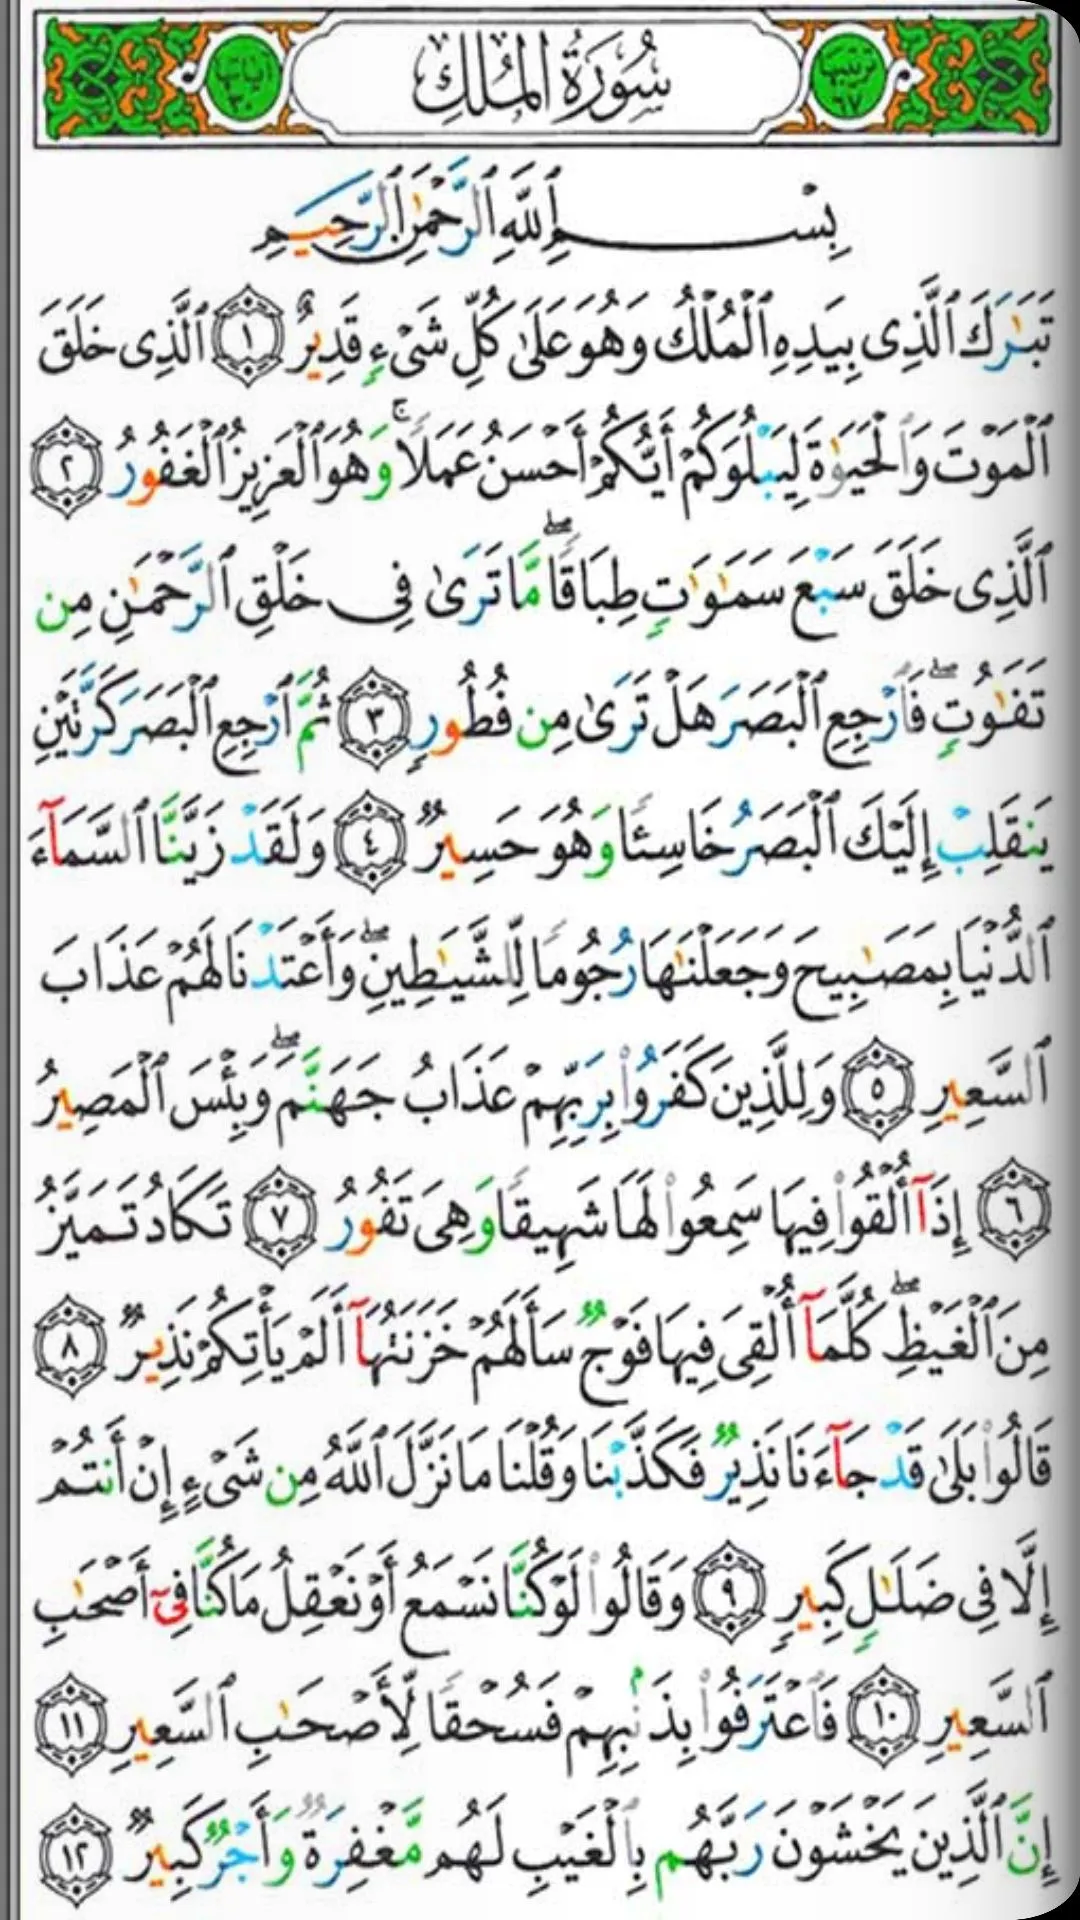 ترتيبها ٦٧
سُورَةُ المُلْكِ
آياتها ٣٠
بِسْمِ ٱللَّهِ ٱلرَّحْمَٰنِ ٱلرَّحِيمِ
تَبَٰرَكَ ٱلَّذِى بِيَدِهِ ٱلْمُلْكُ وَهُوَ عَلَىٰ كُلِّ شَىْءٍ قَدِيرٌ ١ ٱلَّذِى خَلَقَ
ٱلْمَوْتَ وَٱلْحَيَوٰةَ لِيَبْلُوَكُمْ أَيُّكُمْ أَحْسَنُ عَمَلًا ۚ وَهُوَ ٱلْعَزِيزُ ٱلْغَفُورُ ٢
ٱلَّذِى خَلَقَ سَبْعَ سَمَٰوَٰتٍ طِبَاقًا ۖ مَّا تَرَىٰ فِى خَلْقِ ٱلرَّحْمَٰنِ مِن
تَفَٰوُتٍ ۖ فَٱرْجِعِ ٱلْبَصَرَ هَلْ تَرَىٰ مِن فُطُورٍ ٣ ثُمَّ ٱرْجِعِ ٱلْبَصَرَ كَرَّتَيْنِ
يَنقَلِبْ إِلَيْكَ ٱلْبَصَرُ خَاسِئًا وَهُوَ حَسِيرٌ ٤ وَلَقَدْ زَيَّنَّا ٱلسَّمَآءَ
ٱلدُّنْيَا بِمَصَٰبِيحَ وَجَعَلْنَٰهَا رُجُومًا لِّلشَّيَٰطِينِ ۖ وَأَعْتَدْنَا لَهُمْ عَذَابَ
ٱلسَّعِيرِ ٥ وَلِلَّذِينَ كَفَرُوا۟ بِرَبِّهِمْ عَذَابُ جَهَنَّمَ ۖ وَبِئْسَ ٱلْمَصِيرُ
٦ إِذَآ أُلْقُوا۟ فِيهَا سَمِعُوا۟ لَهَا شَهِيقًا وَهِىَ تَفُورُ ٧ تَكَادُ تَمَيَّزُ
مِنَ ٱلْغَيْظِ ۖ كُلَّمَآ أُلْقِىَ فِيهَا فَوْجٌ سَأَلَهُمْ خَزَنَتُهَآ أَلَمْ يَأْتِكُمْ نَذِيرٌ ٨
قَالُوا۟ بَلَىٰ قَدْ جَآءَنَا نَذِيرٌ فَكَذَّبْنَا وَقُلْنَا مَا نَزَّلَ ٱللَّهُ مِن شَىْءٍ إِنْ أَنتُمْ
إِلَّا فِى ضَلَٰلٍ كَبِيرٍ ٩ وَقَالُوا۟ لَوْ كُنَّا نَسْمَعُ أَوْ نَعْقِلُ مَا كُنَّا فِىٓ أَصْحَٰبِ
ٱلسَّعِيرِ ١٠ فَٱعْتَرَفُوا۟ بِذَنۢبِهِمْ فَسُحْقًا لِّأَصْحَٰبِ ٱلسَّعِيرِ ١١
إِنَّ ٱلَّذِينَ يَخْشَوْنَ رَبَّهُم بِٱلْغَيْبِ لَهُم مَّغْفِرَةٌ وَأَجْرٌ كَبِيرٌ ١٢